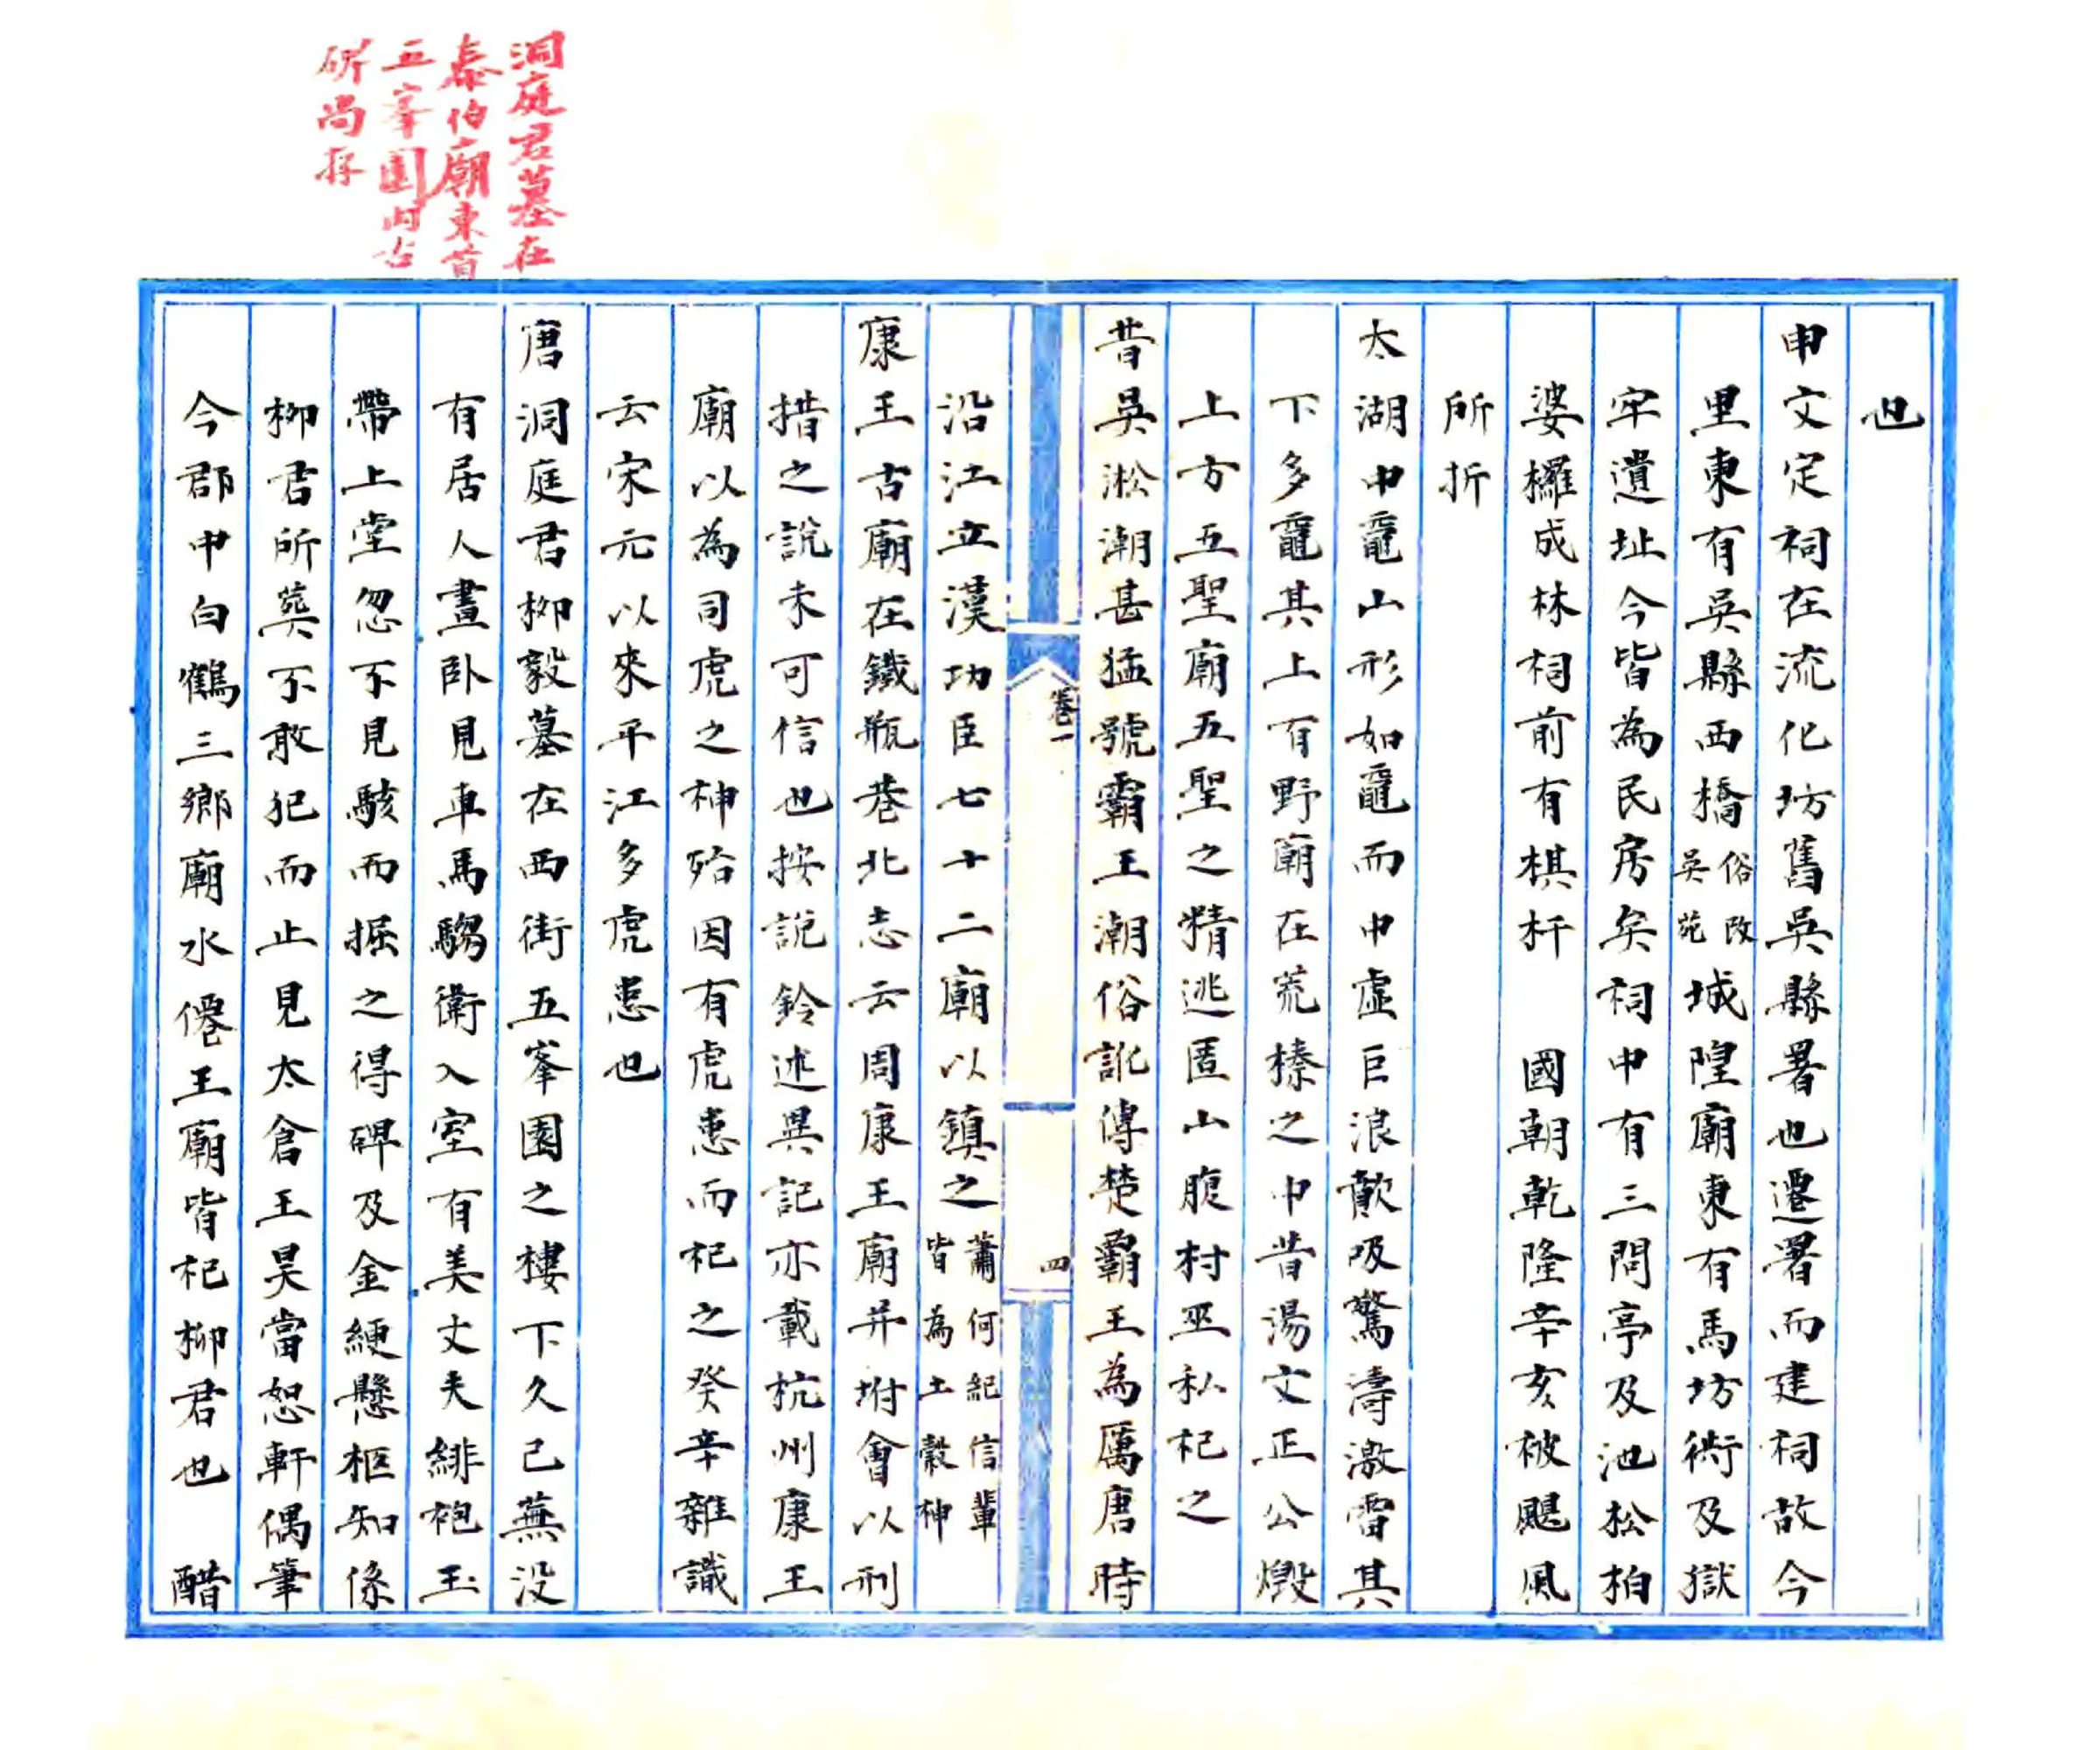 洞庭君墓在
泰伯廟東首
五峯園内古
碑尚存
也
申文定祠在流化坊舊吳縣署也遷署而建祠故今
里東有吳縣西橋俗改吳苑城隍廟東有馬坊衖及獄
牢遺址今皆為民房矣祠中有三間亭及池松柏
婆欏成林祠前有棋杆　國朝乾隆辛亥被颶風
所折
太湖中黿山形如黿而中虛巨浪歕吸驚濤激雷其
下多黿其上有野廟在荒榛之中昔湯文正公燬
上方五聖廟五聖之精逃匿山腹村巫私祀之
昔吳淞潮甚猛號霸王潮俗訛傳楚霸王為厲唐時
卷一
四
沿江立漢功臣七十二廟以鎮之蕭何紀信輩皆為土穀神
康王古廟在鐵瓶巷北志云周康王廟并坿會以刑
措之說未可信也按說鈴述異記亦載杭州康王
廟以為司虎之神殆因有虎患而祀之癸辛雜識
云宋元以來平江多虎患也
唐洞庭君柳毅墓在西街五峯園之樓下久已蕪没
有居人晝卧見車馬騶衛入室有美丈夫緋袍玉
帶上堂忽不見駭而掘之得碑及金綆懸柩知係
柳君所葬不敢犯而止見太倉王昊當恕軒偶筆
今郡中白鶴三鄉廟水僊王廟皆祀柳君也　醋